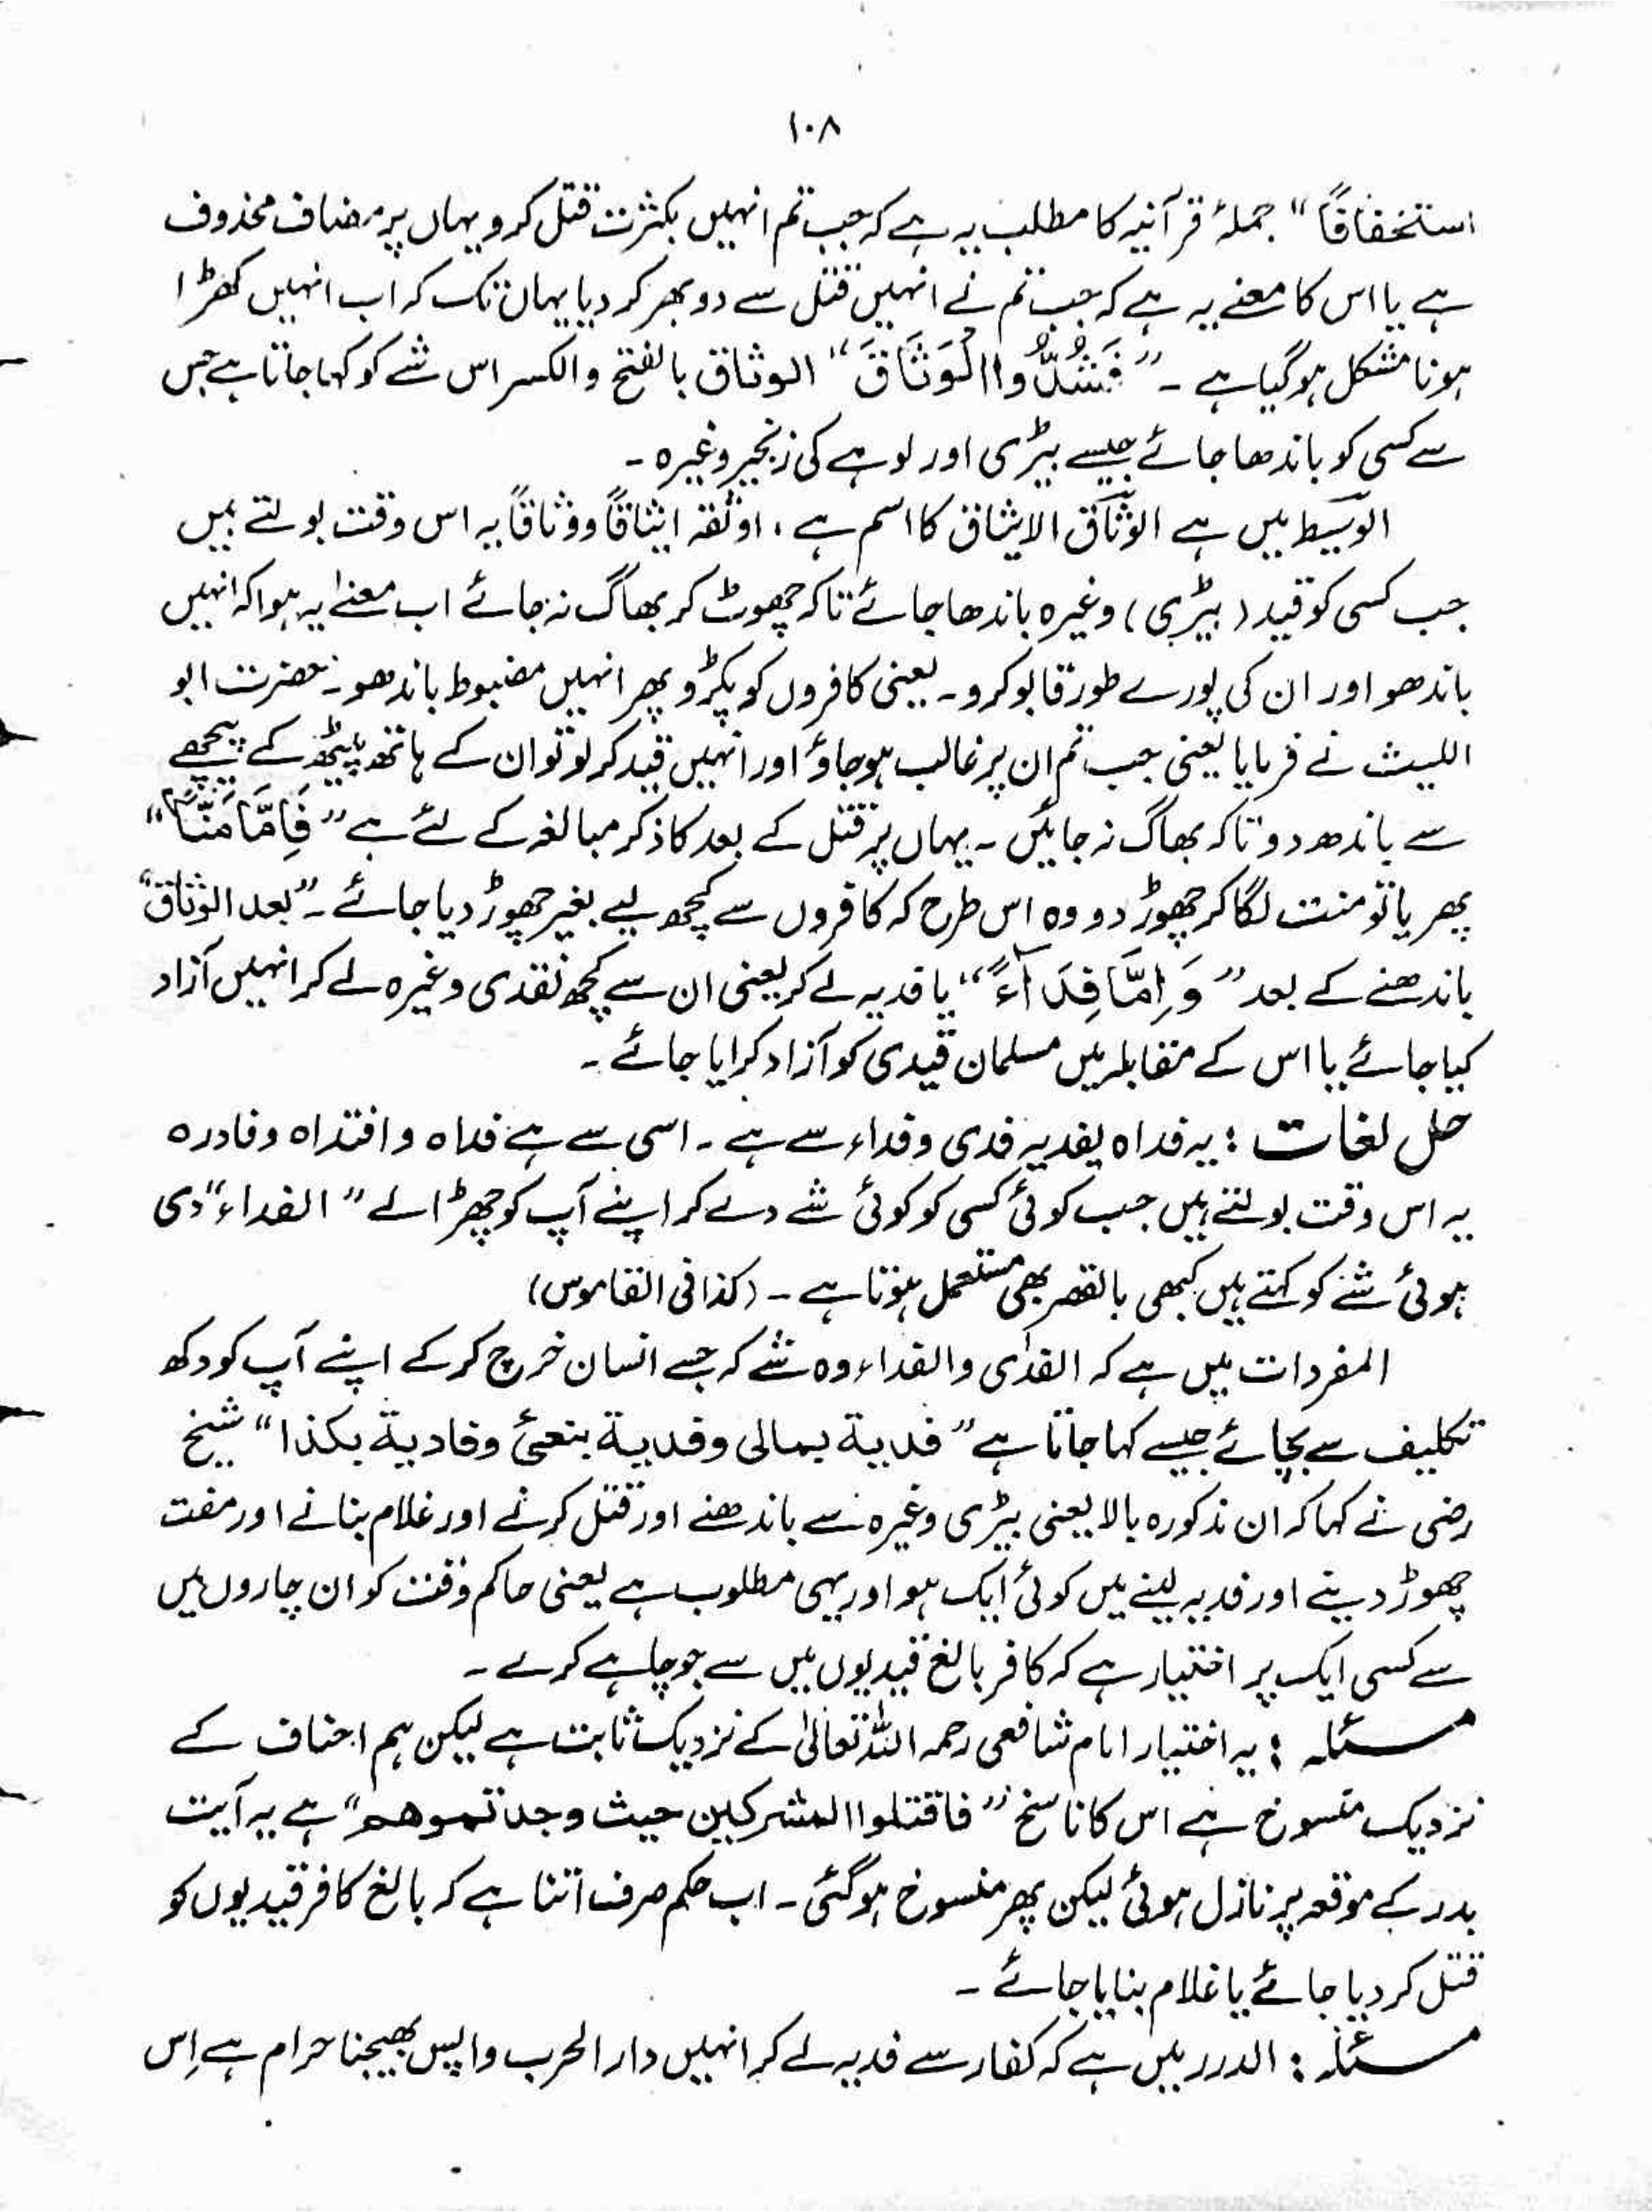 ۱۰۸
استخفافاً" جملۂ قرآنیہ کا مطلب یہ ہے کہ جب تم انہیں بکثرت قتل کرو یہاں پر مضاف محذوف
ہے یا اس کا معنے یہ ہے کہ جب تم نے انہیں قتل سے دوبھر کر دیا یہاں تک کہ اب انہیں کھڑا
ہونا مشکل ہوگیا ہے ۔ "فَشُدُّوا الْوَثَاقَ" الوثاق بالفتح والکسر اس شے کو کہا جاتا ہے جس
سے کسی کو باندھا جائے جیسے بیڑی اور لوہے کی زنجیر وغیرہ ۔
الوسیط میں ہے الوثاق الایثاق کا اسم ہے ، اوثقہ ایثاقاً ووثاقاً یہ اس وقت بولتے ہیں
جب کسی کو قید (بیڑی) وغیرہ باندھا جائے تاکہ چھوٹ کر بھاگ نہ جائے اب معنےٰ یہ ہوا کہ انہیں
باندھو اور ان کی پورے طور قابو کرو ۔ یعنی کافروں کو پکڑو پھر انہیں مضبوط باندھو ۔ حضرت ابو
اللیث نے فرمایا یعنی جب تم ان پر غالب ہوجاؤ اور انہیں قید کر لو تو ان کے ہاتھ پیٹھ کے پیچھے
سے باندھ دو تاکہ بھاگ نہ جائیں ۔ یہاں پر قتل کے بعد کا ذکر مبالغہ کے لئے ہے "فَاِمَّا مَنًّا"
پھر یا تو منت لگا کر چھوڑ دو وہ اس طرح کہ کافروں سے کچھ لیے بغیر چھوڑ دیا جائے ۔ "بعد الوثاق"
باندھنے کے بعد "وَ اِمَّا فِدَآءً" یا فدیہ لے کر یعنی ان سے کچھ نقدی وغیرہ لے کر انہیں آزاد
کیا جائے یا اس کے مقابلہ میں مسلمان قیدی کو آزاد کرایا جائے ۔
حل لغات : یہ فداہ یفدیہ فدی وفداء سے ہے ۔ اسی سے ہے فداہ وافتداہ وفادرہ
یہ اس وقت بولتے ہیں جب کوئی کسی کو کوئی شے دے کر اپنے آپ کو چھڑا لے "الفداء" دی
ہوئی شئے کو کہتے ہیں کبھی بالقصر بھی مستعمل ہوتا ہے ۔ (کذا فی القاموس)
المفردات میں ہے کہ الفدٰی والفداء وہ شے کہ جسے انسان خرچ کر کے اپنے آپ کو دکھ
تکلیف سے بچائے جیسے کہا جاتا ہے "فدیۃ بمالی وفدیۃ وفادیۃ بکذا" شیخ
رضی نے کہا کہ ان مذکورہ بالا یعنی بیڑی وغیرہ سے باندھنے اور قتل کرنے اور غلام بنانے اور مفت
چھوڑ دینے اور فدیہ لینے میں کوئی ایک ہو اور یہی مطلوب ہے یعنی حاکم وقت کو ان چاروں میں
سے کسی ایک پر اختیار ہے کہ کافر بالغ قیدیوں میں سے جو چاہے کرے ۔
مسئلہ : یہ اختیار امام شافعی رحمہ اللہ تعالیٰ کے نزدیک ثابت ہے لیکن ہم احناف کے
نزدیک منسوخ ہے اس کا ناسخ "فاقتلوا المشرکین حیث وجدتموهم" ہے یہ آیت
بدر کے موقعہ پر نازل ہوئی لیکن پھر منسوخ ہوگئی ۔ اب حکم صرف اتنا ہے کہ بالغ کافر قیدیوں کو
قتل کر دیا جائے یا غلام بنایا جائے ۔
مسئلہ : الدرر میں ہے کہ کفار سے فدیہ لے کر انہیں دار الحرب واپس بھیجنا حرام ہے اِس